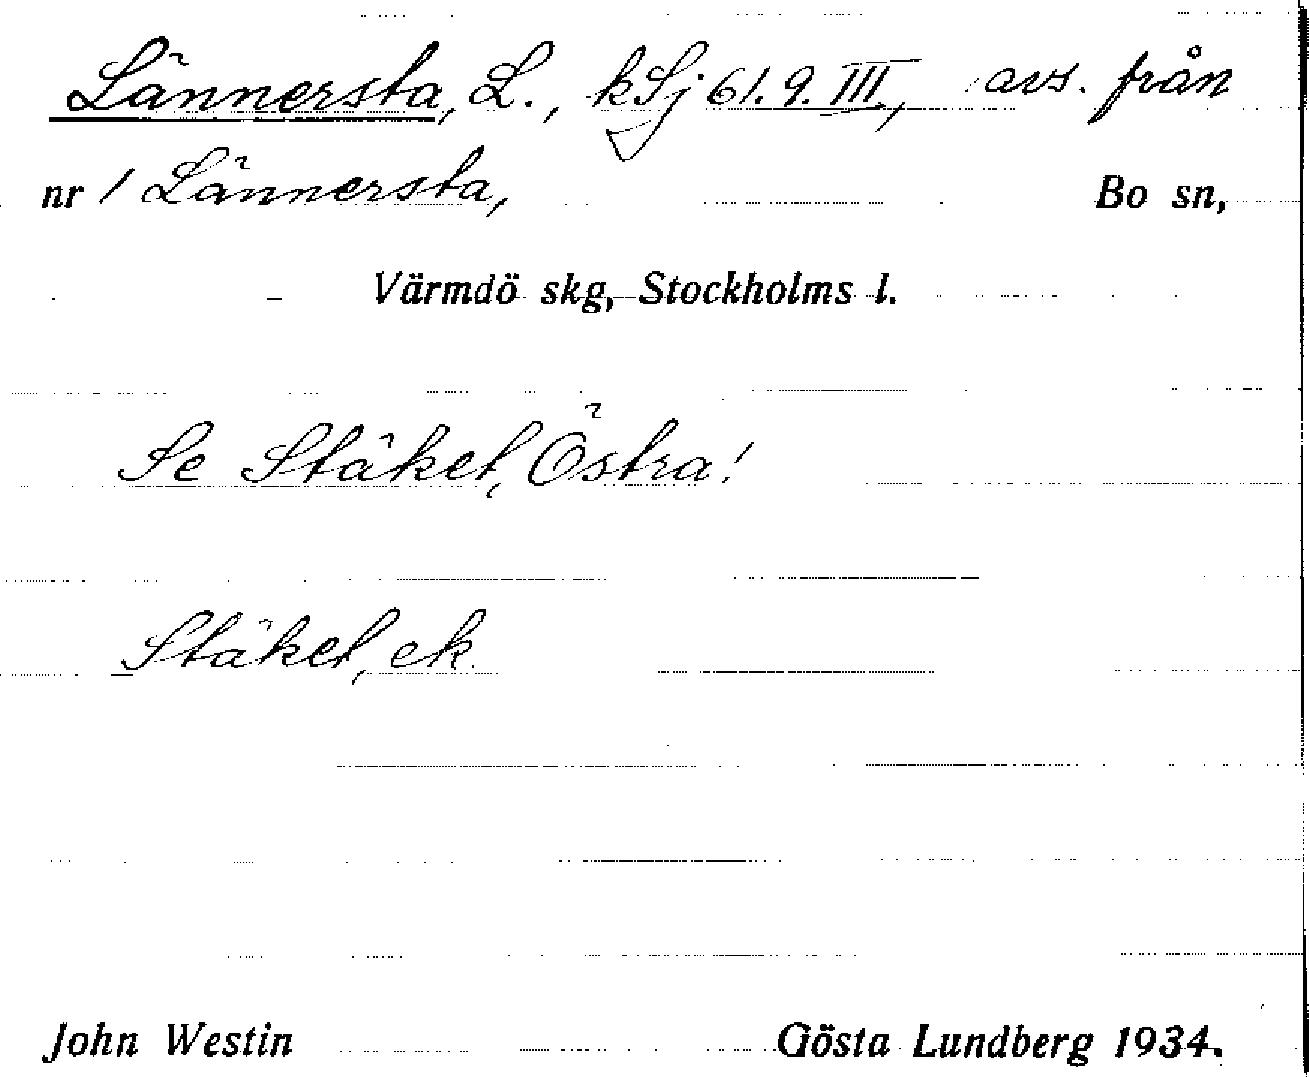 Lännersta, L., kSj 61.9.III, avs. från
nr 1 Lännersta, Bo sn,
Värmdö skg, Stockholms l.
Se Stäket, Östra!
Stäket, ek.
John Westin Gösta Lundberg 1934.